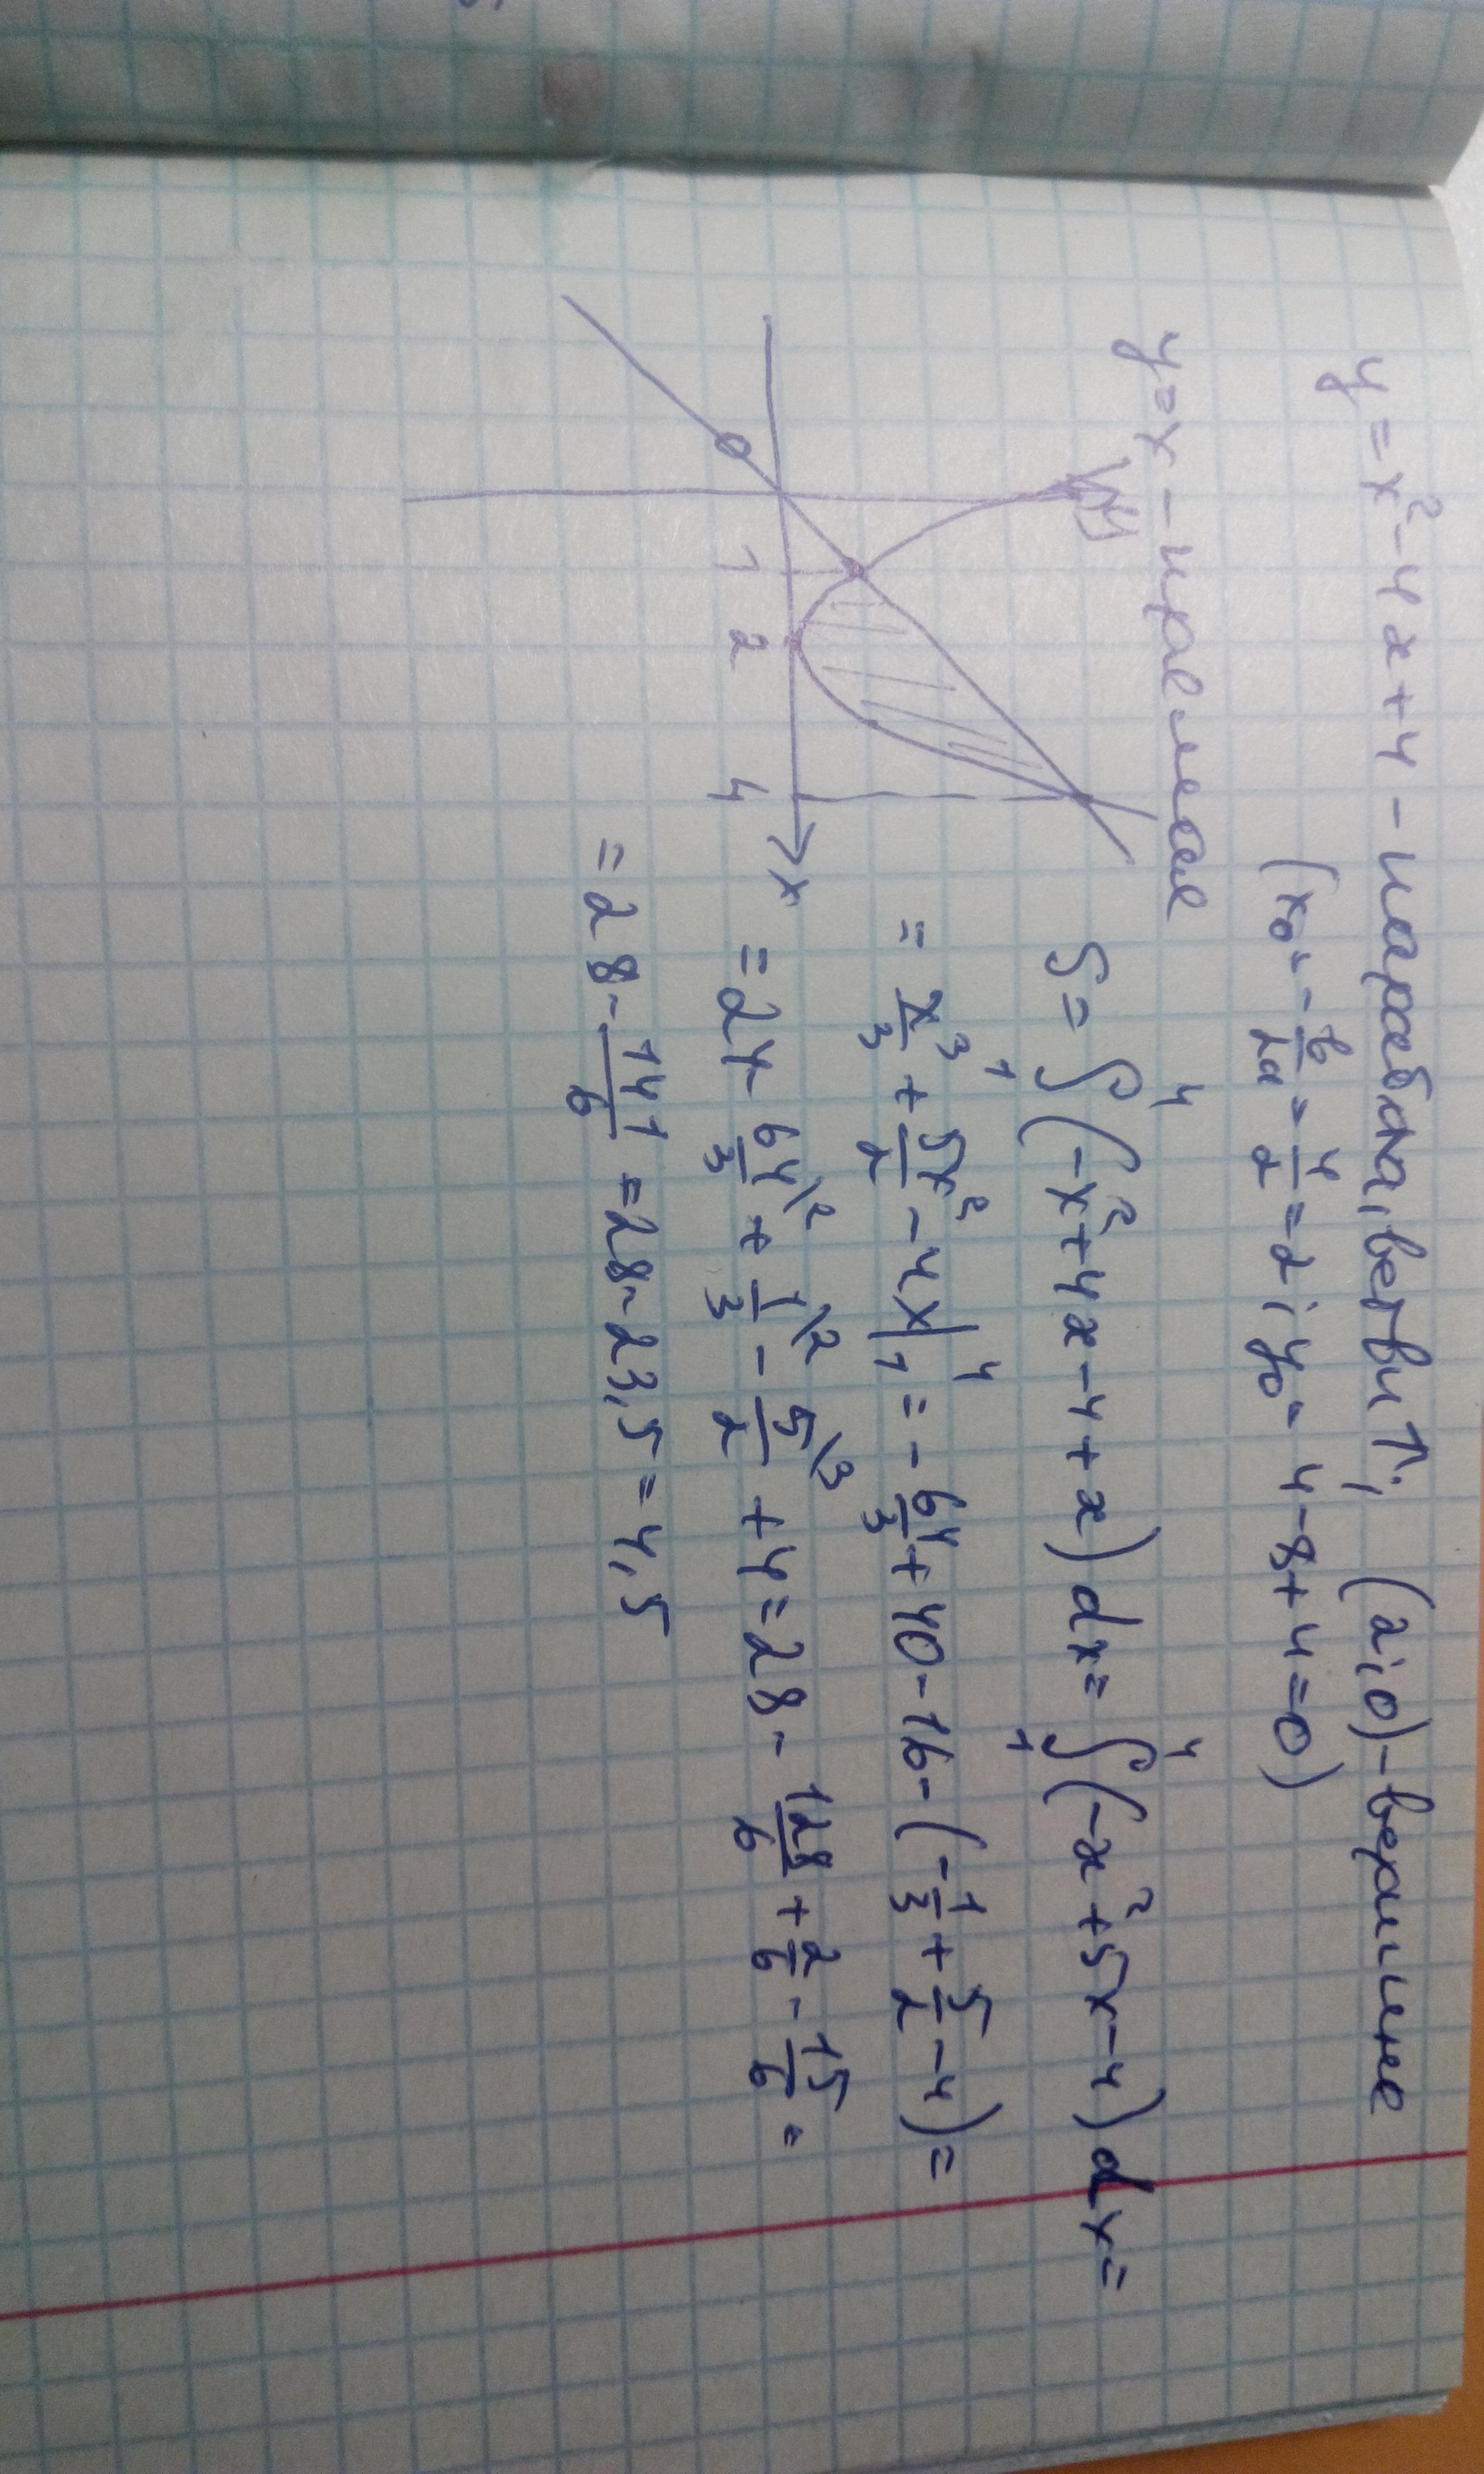 y = x² - 4x + 4 - парабола, ветви ↑; (2;0) - вершина
(x₀ = - b/2a = 4/2 = 2; y₀ = 4 - 8 + 4 = 0)
y = x - прямая
y
1 2 4 x
S = ∫₁⁴ (-x² + 4x - 4 + x) dx = ∫₁⁴ (-x² + 5x - 4) dx =
= x³/3 + 5x²/2 - 4x |₁⁴ = - 64/3 + 40 - 16 - (- 1/3 + 5/2 - 4) =
= 24 - 64/3 \2 + 1/3 \2 - 5/2 \3 + 4 = 28 - 128/6 + 2/6 - 15/6 =
= 28 - 141/6 = 28 - 23,5 = 4,5